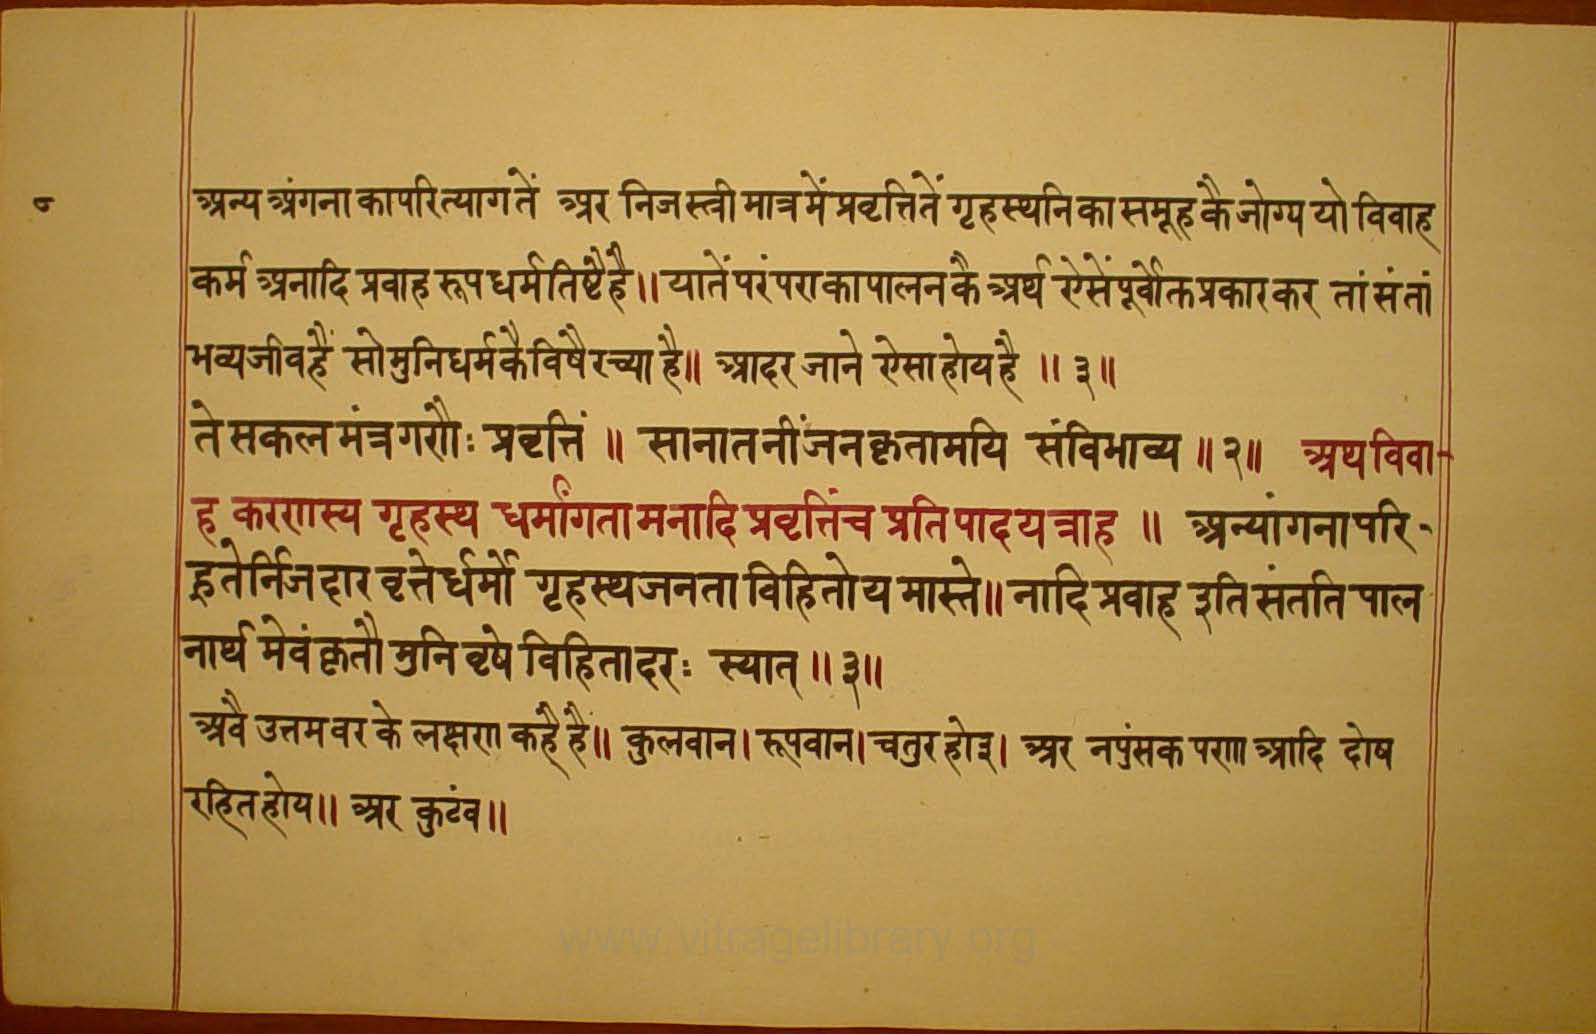 ८
अन्य अंगना का परित्याग तें अर निज स्त्री मात्र में प्रवृत्ति तें गृहस्थनि का समूह कै जोग्य यो विवाह
कर्म अनादि प्रवाह रूप धर्म तिष्टै है॥ यातें परंपरा का पालन कै अर्थ ऐसें पूर्वोक्त प्रकार कर तां संतां
भव्य जीव हैं सो मुनि धर्म कै विषै रच्या है॥ आदर जाने ऐसा होय है ॥ ३॥
ते सकल मंत्र गणैः प्रवृत्तिं ॥ सानातनीं जनकृतामयि संविभाव्य ॥२॥ अथ विवा-
ह करणस्य गृहस्थ धर्मांगतामनादि प्रवृत्तिंच प्रतिपादयन्नाह ॥ अन्यांगना परि-
हृतेर्निजदार वृत्तेर्धर्मो गृहस्थजनता विहितोय मास्ते॥ नादि प्रवाह इति संतति पाल
नार्थ मेवं कृतौ मुनि वृषे विहितादरः स्यात् ॥३॥
अवै उत्तम वर के लक्षण कहै हैं॥ कुलवान। रूपवान। चतुर होइ। अर नपुंसक पणा आदि दोष
रहित होय॥ अर कुटंव॥
www.vitragelibrary.org